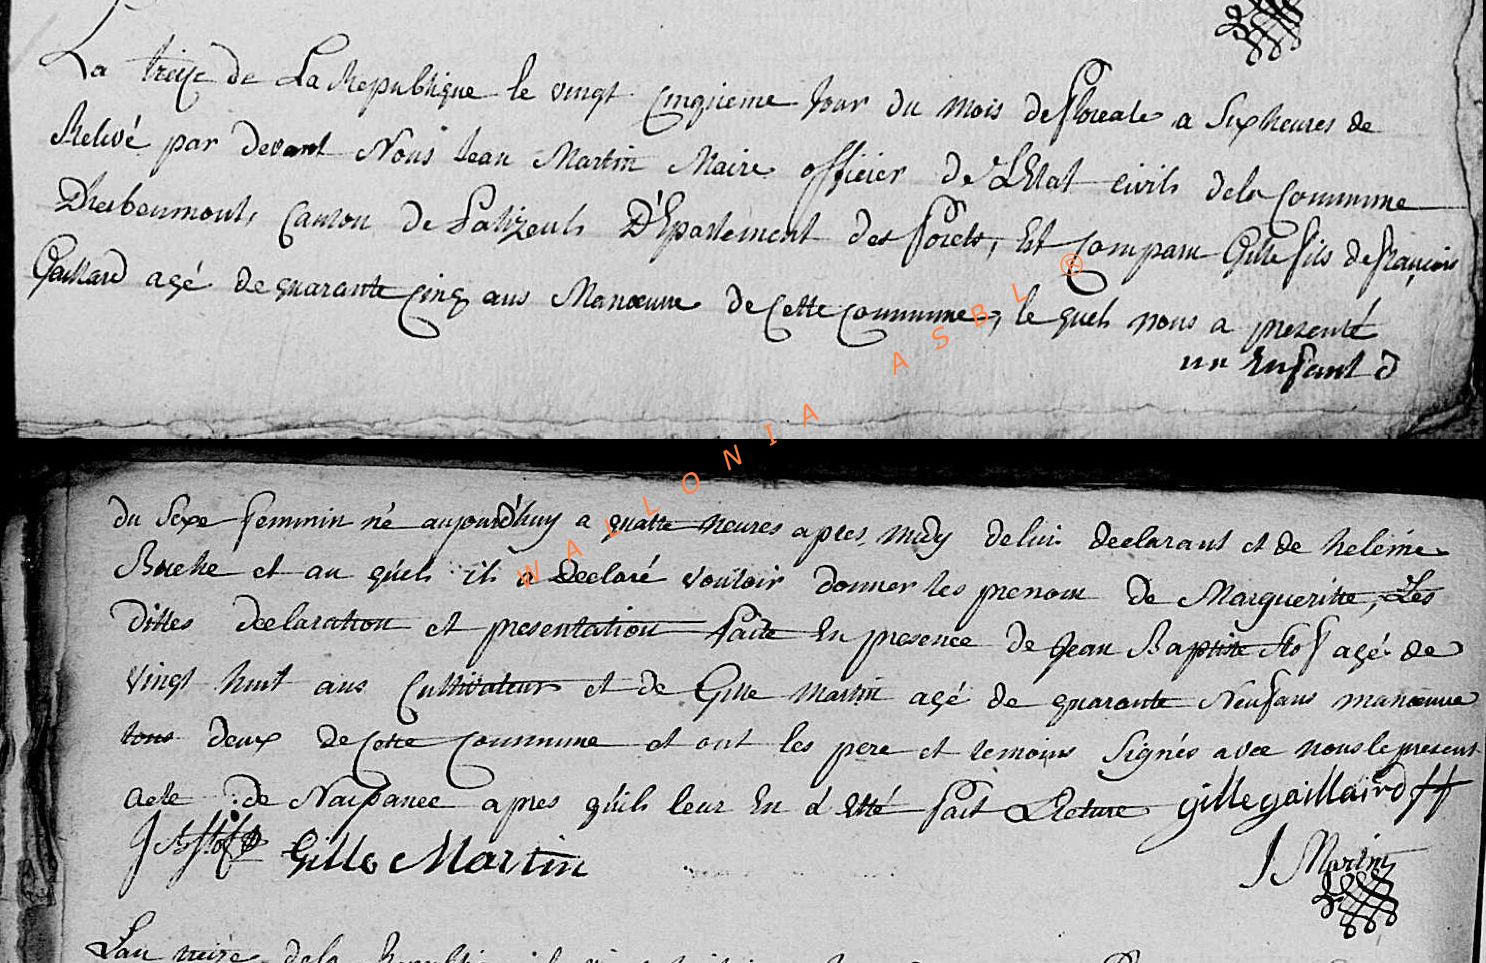 La treize de La Republique le vingt cinquieme Jour du mois de floreale a Six heures de
Relevé par devant Nous Jean Martin Maire officier de L'Etat civils dela Commune
D'herbeumont, Canton de Palizeuls D'Epartement des forets, Est Comparu Gille fils de françois
Gaillard agé de quarante Cinq ans Manœuvre de Cette Commune, le quels nous a presenté
un Enfant d
du Sexe femmin né aujourd'huy a quatre heures apres midy de lui declarant et de heleine
et au quels ils a Declaré Vouloir donner les prenom de Margueritte, Les
dittes declaration et presentation faite En presence de Jean Baptiste Stof agé de
Vingt huit ans Cultivateur et de Gille Martin agé de quarante Neuf ans manœuvre
tous deux de Cette Commune et ont les pere et temoins Signés avec nous le present
acte de Naissance apres qu'ils leur En a Etté fait Lecture gille gaillaird ff
Gille Martin
J Martin
WALLONIA ASBL ®
L'an treize dela